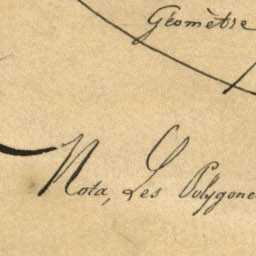 Géomètre
Nota, Les Polygone